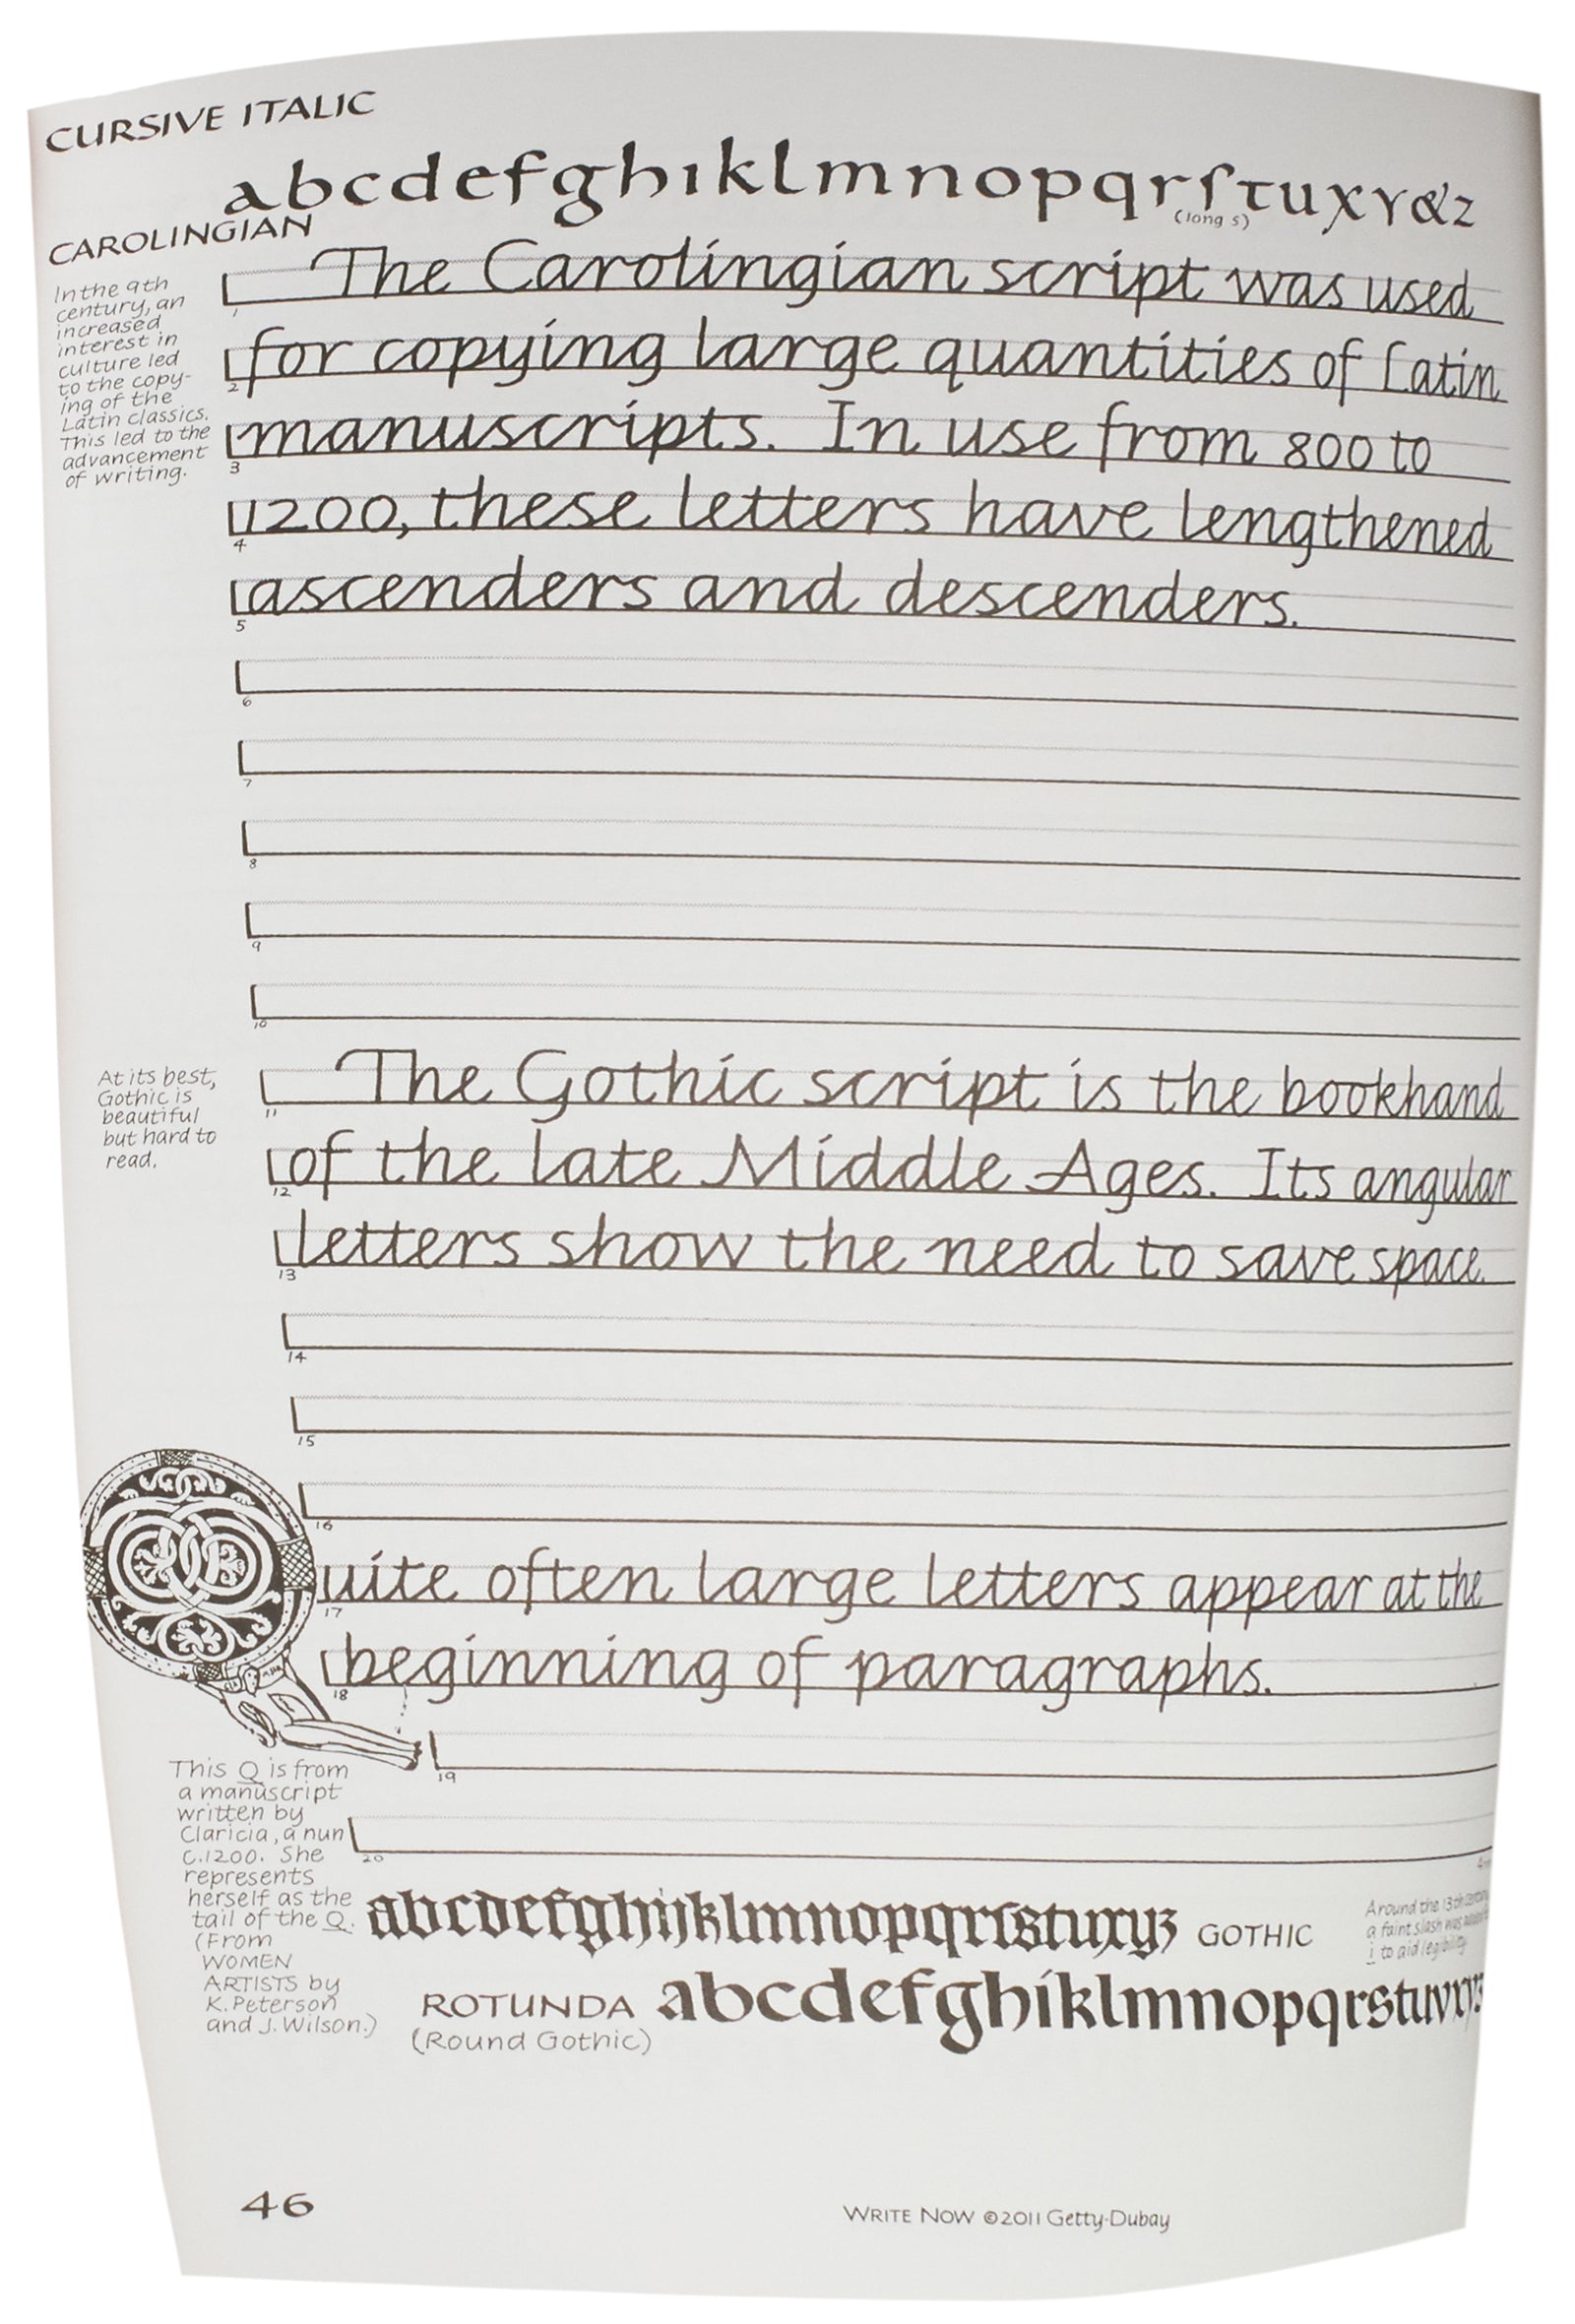 CURSIVE ITALIC
abcdefghıklmnopqrſtuxyz&z
(long s)
CAROLINGIAN
In the 9th
century, an
increased
interest in
culture led
to the copy-
ing of the
Latin classics.
This led to the
advancement
of writing.
The Carolingian script was used
1
for copying large quantities of Latin
2
manuscripts. In use from 800 to
3
1200, these letters have lengthened
4
ascenders and descenders.
5
6
7
8
9
10
At its best,
Gothic is
beautiful
but hard to
read.
The Gothic script is the bookhand
11
of the late Middle Ages. Its angular
12
letters show the need to save space.
13
14
15
16
Quite often large letters appear at the
17
beginning of paragraphs.
18
19
20
This Q is from
a manuscript
written by
Claricia, a nun
c.1200. She
represents
herself as the
tail of the Q.
(From
WOMEN
ARTISTS by
K. Peterson
and J. Wilson.)
abcdefghijklmnopqrſstuxyz GOTHIC
Around the 13th century
a faint slash was
i to aid legibility
ROTUNDA abcdefghíklmnopqrstuvxyz
(Round Gothic)
46
WRITE NOW ©2011 Getty-Dubay